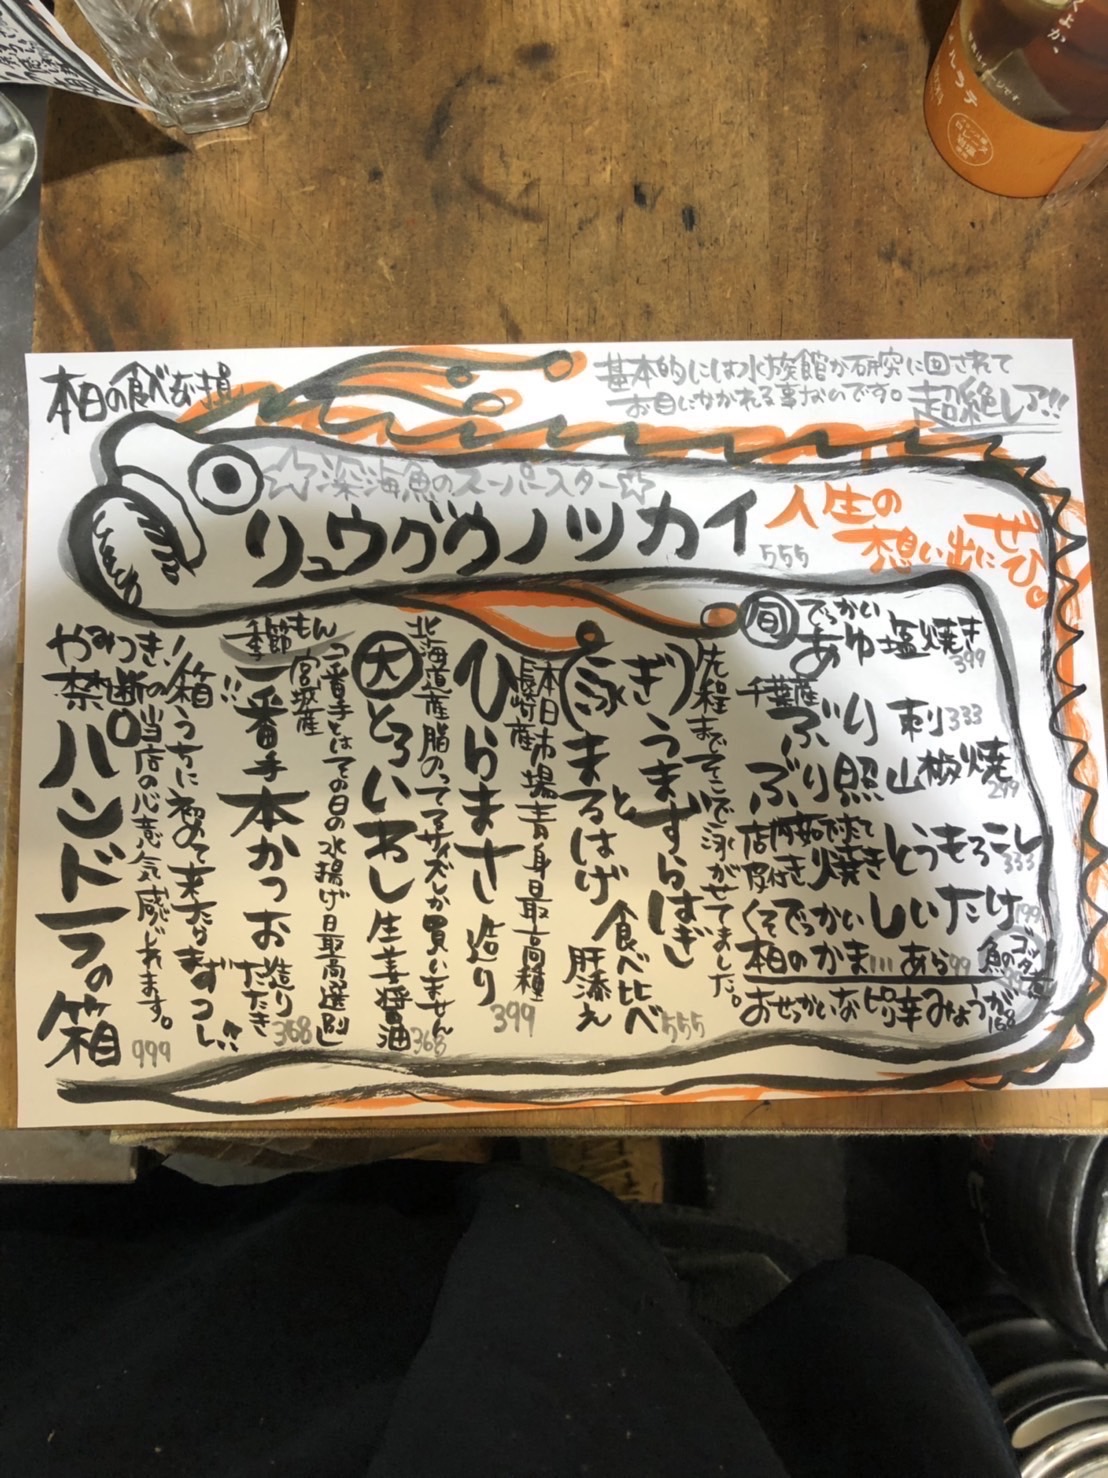 本日の食べな損
基本的には水族館か研究に回されて
お目にかかれる事ないのです。超絶レア!!
☆深海魚のスーパースター☆
リュウグウノツカイ 555
人生の
想い出に
ぜひ。
旬 でっかい
あゆ塩焼き 399
千葉産
ぶり 刺 333
ぶり照 山椒焼 299
とうもろこし 333
くそでっかい しいたけ 199
相のかま… あら 99
魚のゴッタ煮
おせっかいなピリ辛みょうが 168
先程までそこで泳がせてました。
(泳ぎ) うまずらはぎ
と
まるはげ 食べ比べ
肝添え 555
長崎産
本日市場青身最高種
ひらまさ 造り 399
北海道産 脂のってるサイズしか買いません
大とろいわし 生姜醤油 368
一番手とはその日の水揚げ日最高選別
宮城産
季節もん
一番手本かつお 造り たたき 368
!!
箱うちに初めて来たらまずコレ!!
やみつき!
禁断の当店の心意気感じれます。
パンドラの箱 999